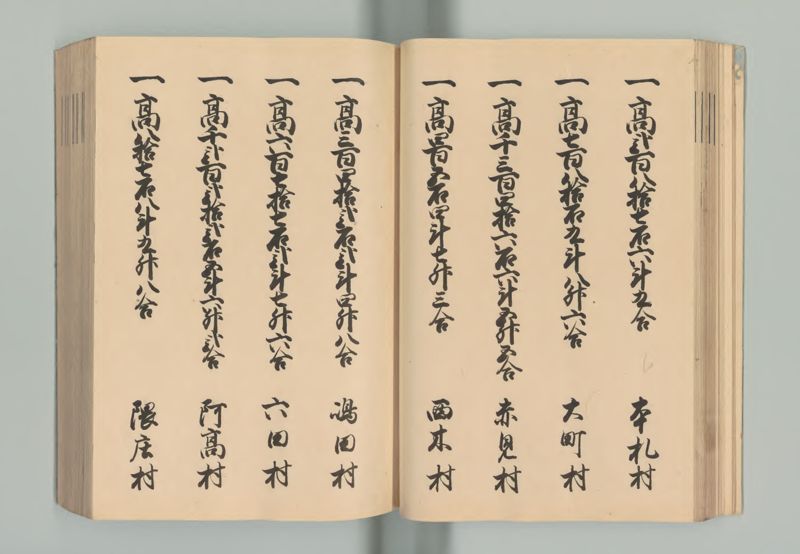 一高弐百八拾七石六斗五合 本札村
一高七百八拾石九斗八升六合 大町村
一高千三百四拾六石六斗五升五合 赤見村
一高四百五石四斗七升三合 西木村
一高三百四拾弐石弐斗四升八合 嶋田村
一高六百七拾七石弐斗七升六合 六田村
一高千弐百弐拾弐石五斗六升弐合 阿高村
一高八拾七石八斗五升八合 隈庄村